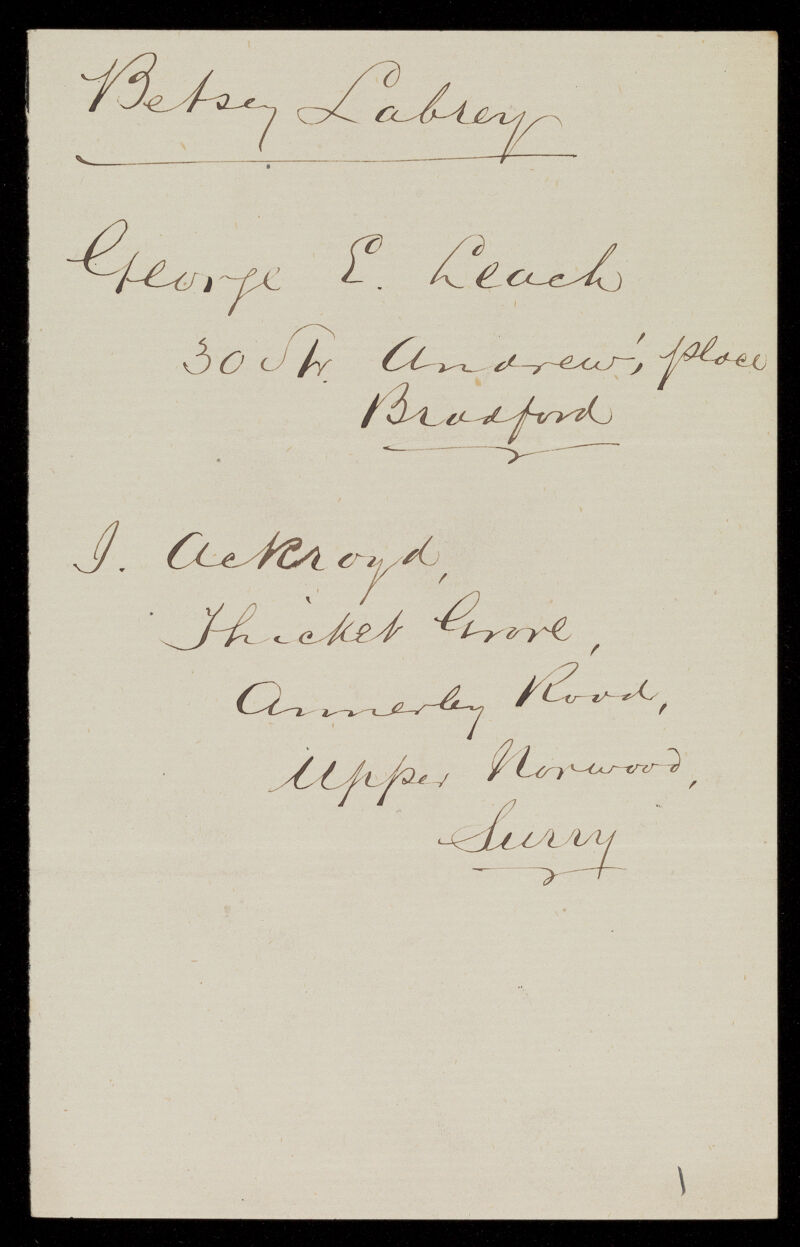 Betsey Labrey
George E. Leach
30 St. Andrew's place
Bradford
J. Ackroyd,
Thicket Grove,
Annerley Road,
Upper Norwood,
Surry